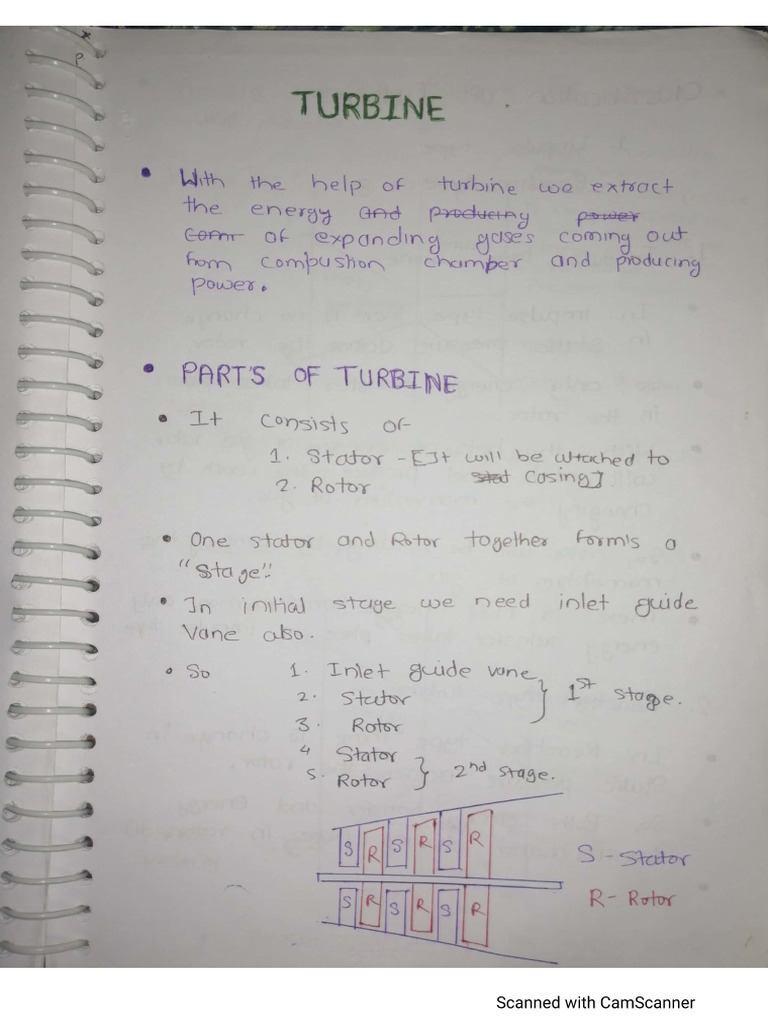 x
P
TURBINE
• With the help of turbine we extract
the energy and producing power
comr of expanding gases coming out
from compustion chamber and producing
power.
• PART'S OF TURBINE
• It consists of
1. Stator - [It will be attached to
2. Rotor stat Casing]
• One stator and Rotor together form's a
"Stage".
• In initial stage we need inlet guide
Vane also.
• So 1. Inlet guide vane
2. Stator } 1st stage.
3. Rotor
4 Stator
5. Rotor } 2nd stage.
S R S R S R
S - Stator
R - Rotor
S R S R S R
Scanned with CamScanner